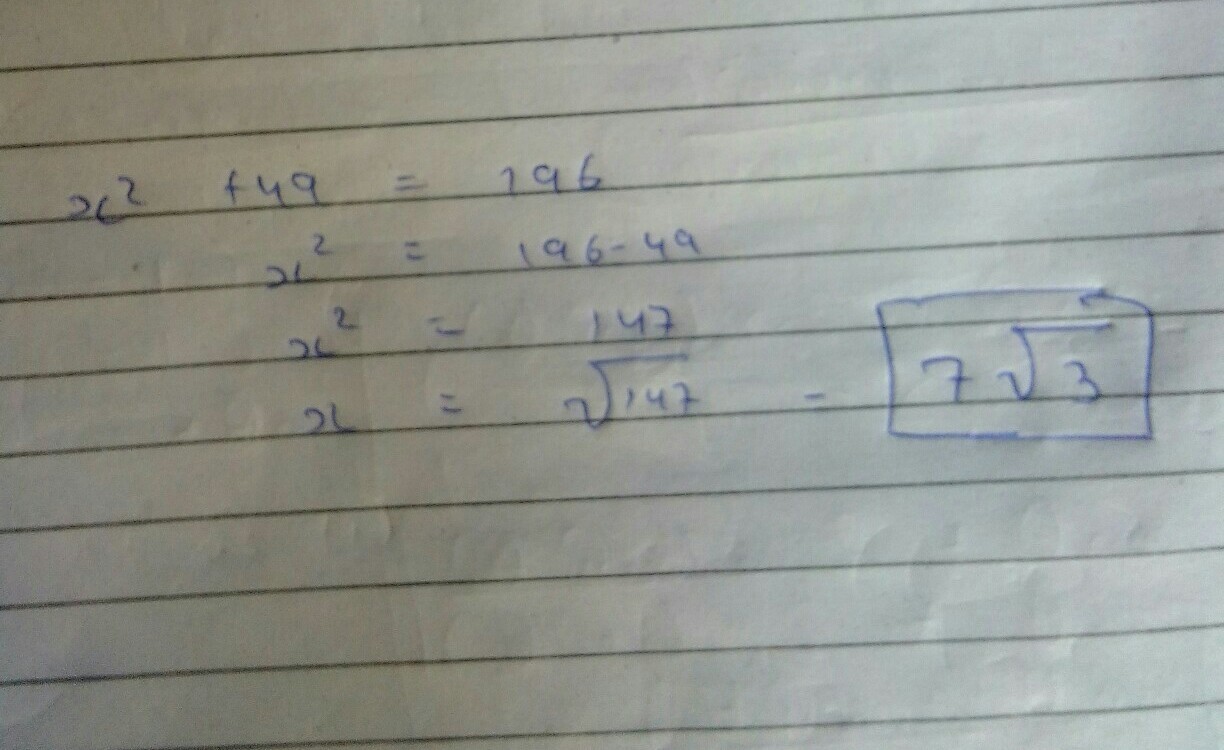 x² + 49 = 196
x² = 196 - 49
x² = 147
x = √147 - 7√3